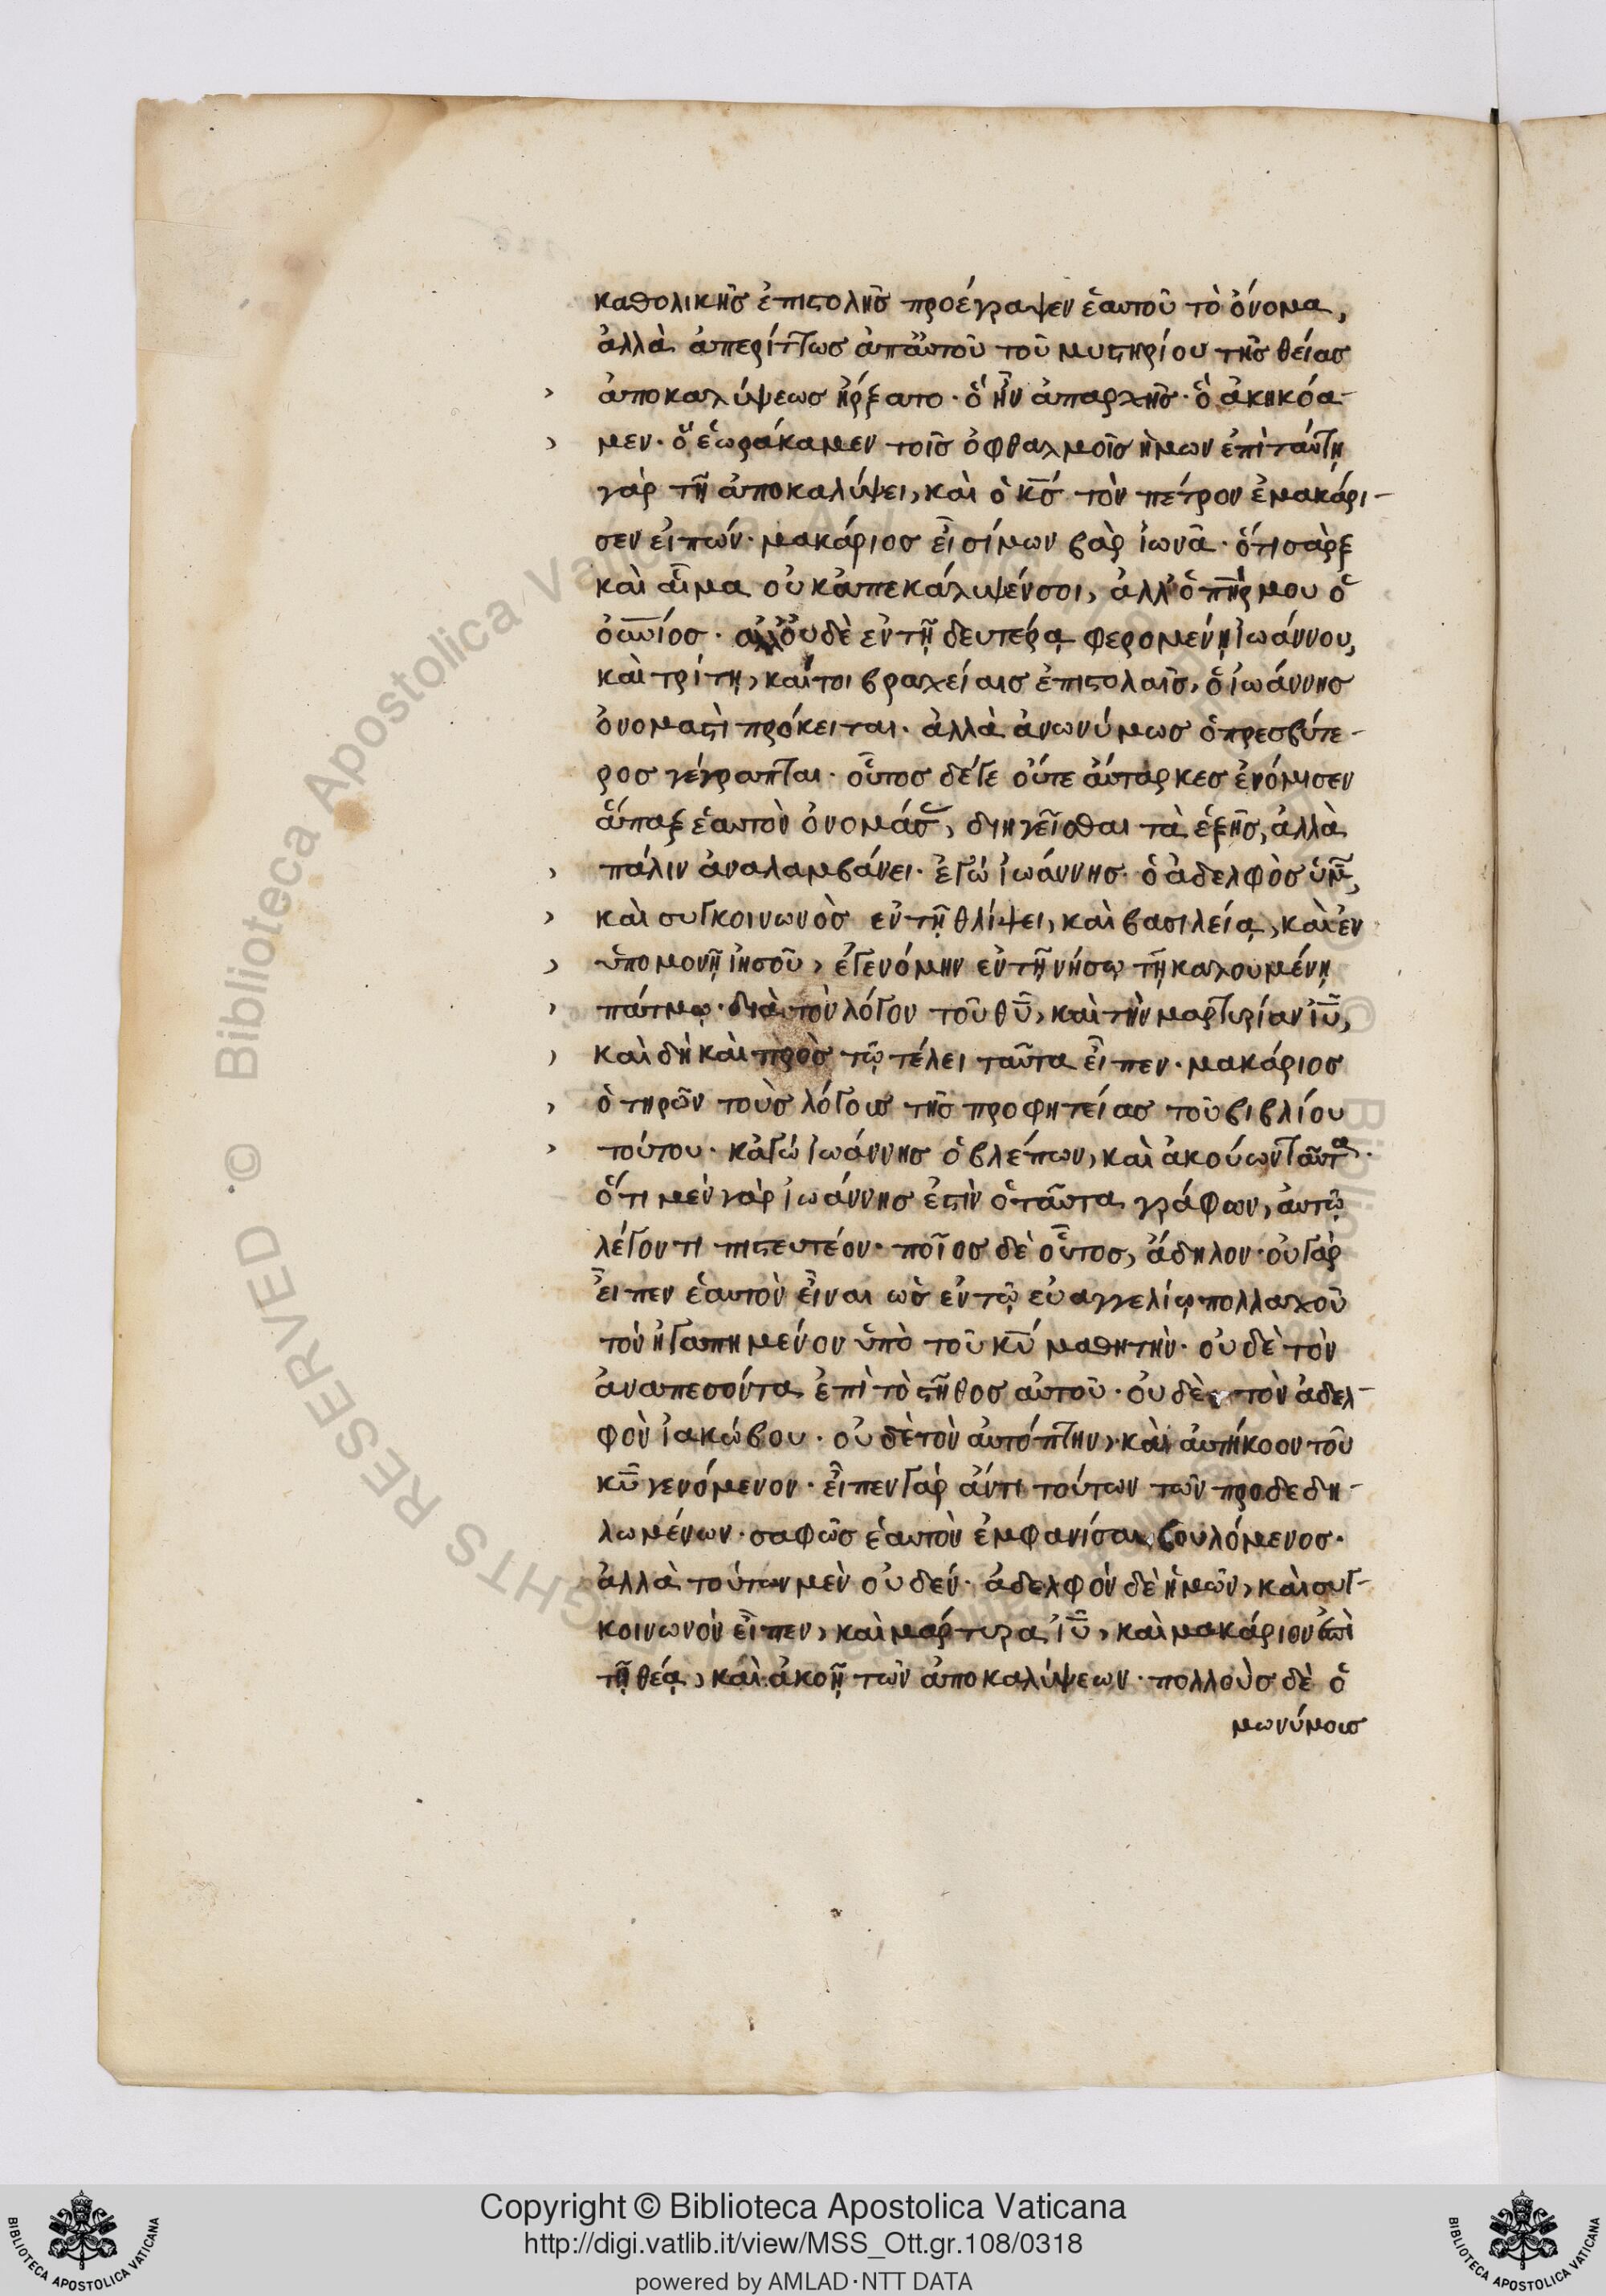 καθολικῆς ἐπιστολῆς προέγραψεν ἑαυτοῦ τὸ ὄνομα,
ἀλλὰ ἀπερίττως ἀπ' αὐτοῦ τοῦ μυστηρίου τῆς θείας
› ἀποκαλύψεως ἤρξατο· ὃ ἦν ἀπαρχῆς· ὃ ἀκηκόα-
› μεν· ὃ ἑωράκαμεν τοῖς ὀφθαλμοῖς ἡμων ἐπὶ ταύτῃ
γὰρ τῆ ἀποκαλύψει, καὶ ὁ κς τὸν πέτρον ἐμακάρι-
σεν εἰπών· μακάριος εἶ σίμων βὰρ ἰωνᾶ· ὅτι σὰρξ
καὶ αἷμα οὐκ ἀπεκάλυψέν σοι, ἀλλ' ὁ πηρ μου ὁ
οὐνιος· οὐδὲ ἐν τῇ δευτέρᾳ φερομένῃ ἰωάννου,
καὶ τρίτῃ, καίτοι βραχείαις ἐπιστολαῖς, ὁ ἰωάννης
ὀνομαστὶ πρόκειται· ἀλλὰ ἀνωνύμως ὁ πρεσβύτε-
ρος γέγραπται· οὗτος δέ γε οὔτε αὔταρκες ἐνόμισεν
ἅπαξ ἑαυτὸν ὀνομάσ, διηγεῖσθαι τὰ ἑξῆς, ἀλλὰ
› πάλιν ἀναλαμβάνει· ἐγώ ἰωάννης· ὁ ἀδελφὸς ὑμ,
› καὶ συγκοινωνὸς ἐν τῇ θλίψει, καὶ βασιλείᾳ, καὶ ἐν
› ὑπομονῇ ἰησοῦ, ἐγενόμην ἐν τῇ νήσῳ τῇ καλουμένῃ
› πάτμῳ· διὰ τὸν λόγον τοῦ θυ, καὶ τὴν μαρτυρίαν ιυ,
› καὶ δὴ καὶ πρὸς τῷ τέλει ταῦτα εἶπεν· μακάριος
› ὁ τηρῶν τοὺς λόγους τῆς προφητείας τοῦ βιβλίου
› τούτου· κἀγώ ἰωάννης ὁ βλέπων, καὶ ἀκούων ταῦτα·
ὅτι μὲν γὰρ ἰωάννης ἐστὶν ὁ ταῦτα γράφων, αὐτῷ
λέγοντι πιστευτέον· ποῖος δὲ οὗτος, ἄδηλον· οὐ γὰρ
εἶπεν ἑαυτὸν εἶναι ὡς ἐν τῷ εὐαγγελίῳ πολλαχοῦ
τὸν ἠγαπημένον ὑπὸ τοῦ κυ μαθητὴν· οὐδὲ τὸν
ἀναπεσόντα ἐπὶ τὸ στῆθος αὐτοῦ· οὐδὲ τὸν ἀδελ-
φὸν ἰακώβου· οὐδὲ τὸν αὐτόπτην, καὶ αὐτήκοον τοῦ
κυ γενόμενον· εἶπεν γὰρ ἄν τι τούτων τῶν προδεδη-
λωμένων· σαφῶς ἑαυτὸν ἐμφανίσαι βουλόμενος·
ἀλλὰ τούτων μὲν οὐδέν· ἀδελφὸν δὲ ἡμῶν, καὶ συγ-
κοινωνὸν εἶπεν, καὶ μάρτυρα ιυ, καὶ μακάριον ἐπὶ
τῇ θέᾳ, καὶ ἀκοῇ τῶν ἀποκαλύψεων· πολλοὺς δὲ ὁ
μωνύμους
Copyright © Biblioteca Apostolica Vaticana
http://digi.vatlib.it/view/MSS_Ott.gr.108/0318
powered by AMLAD·NTT DATA